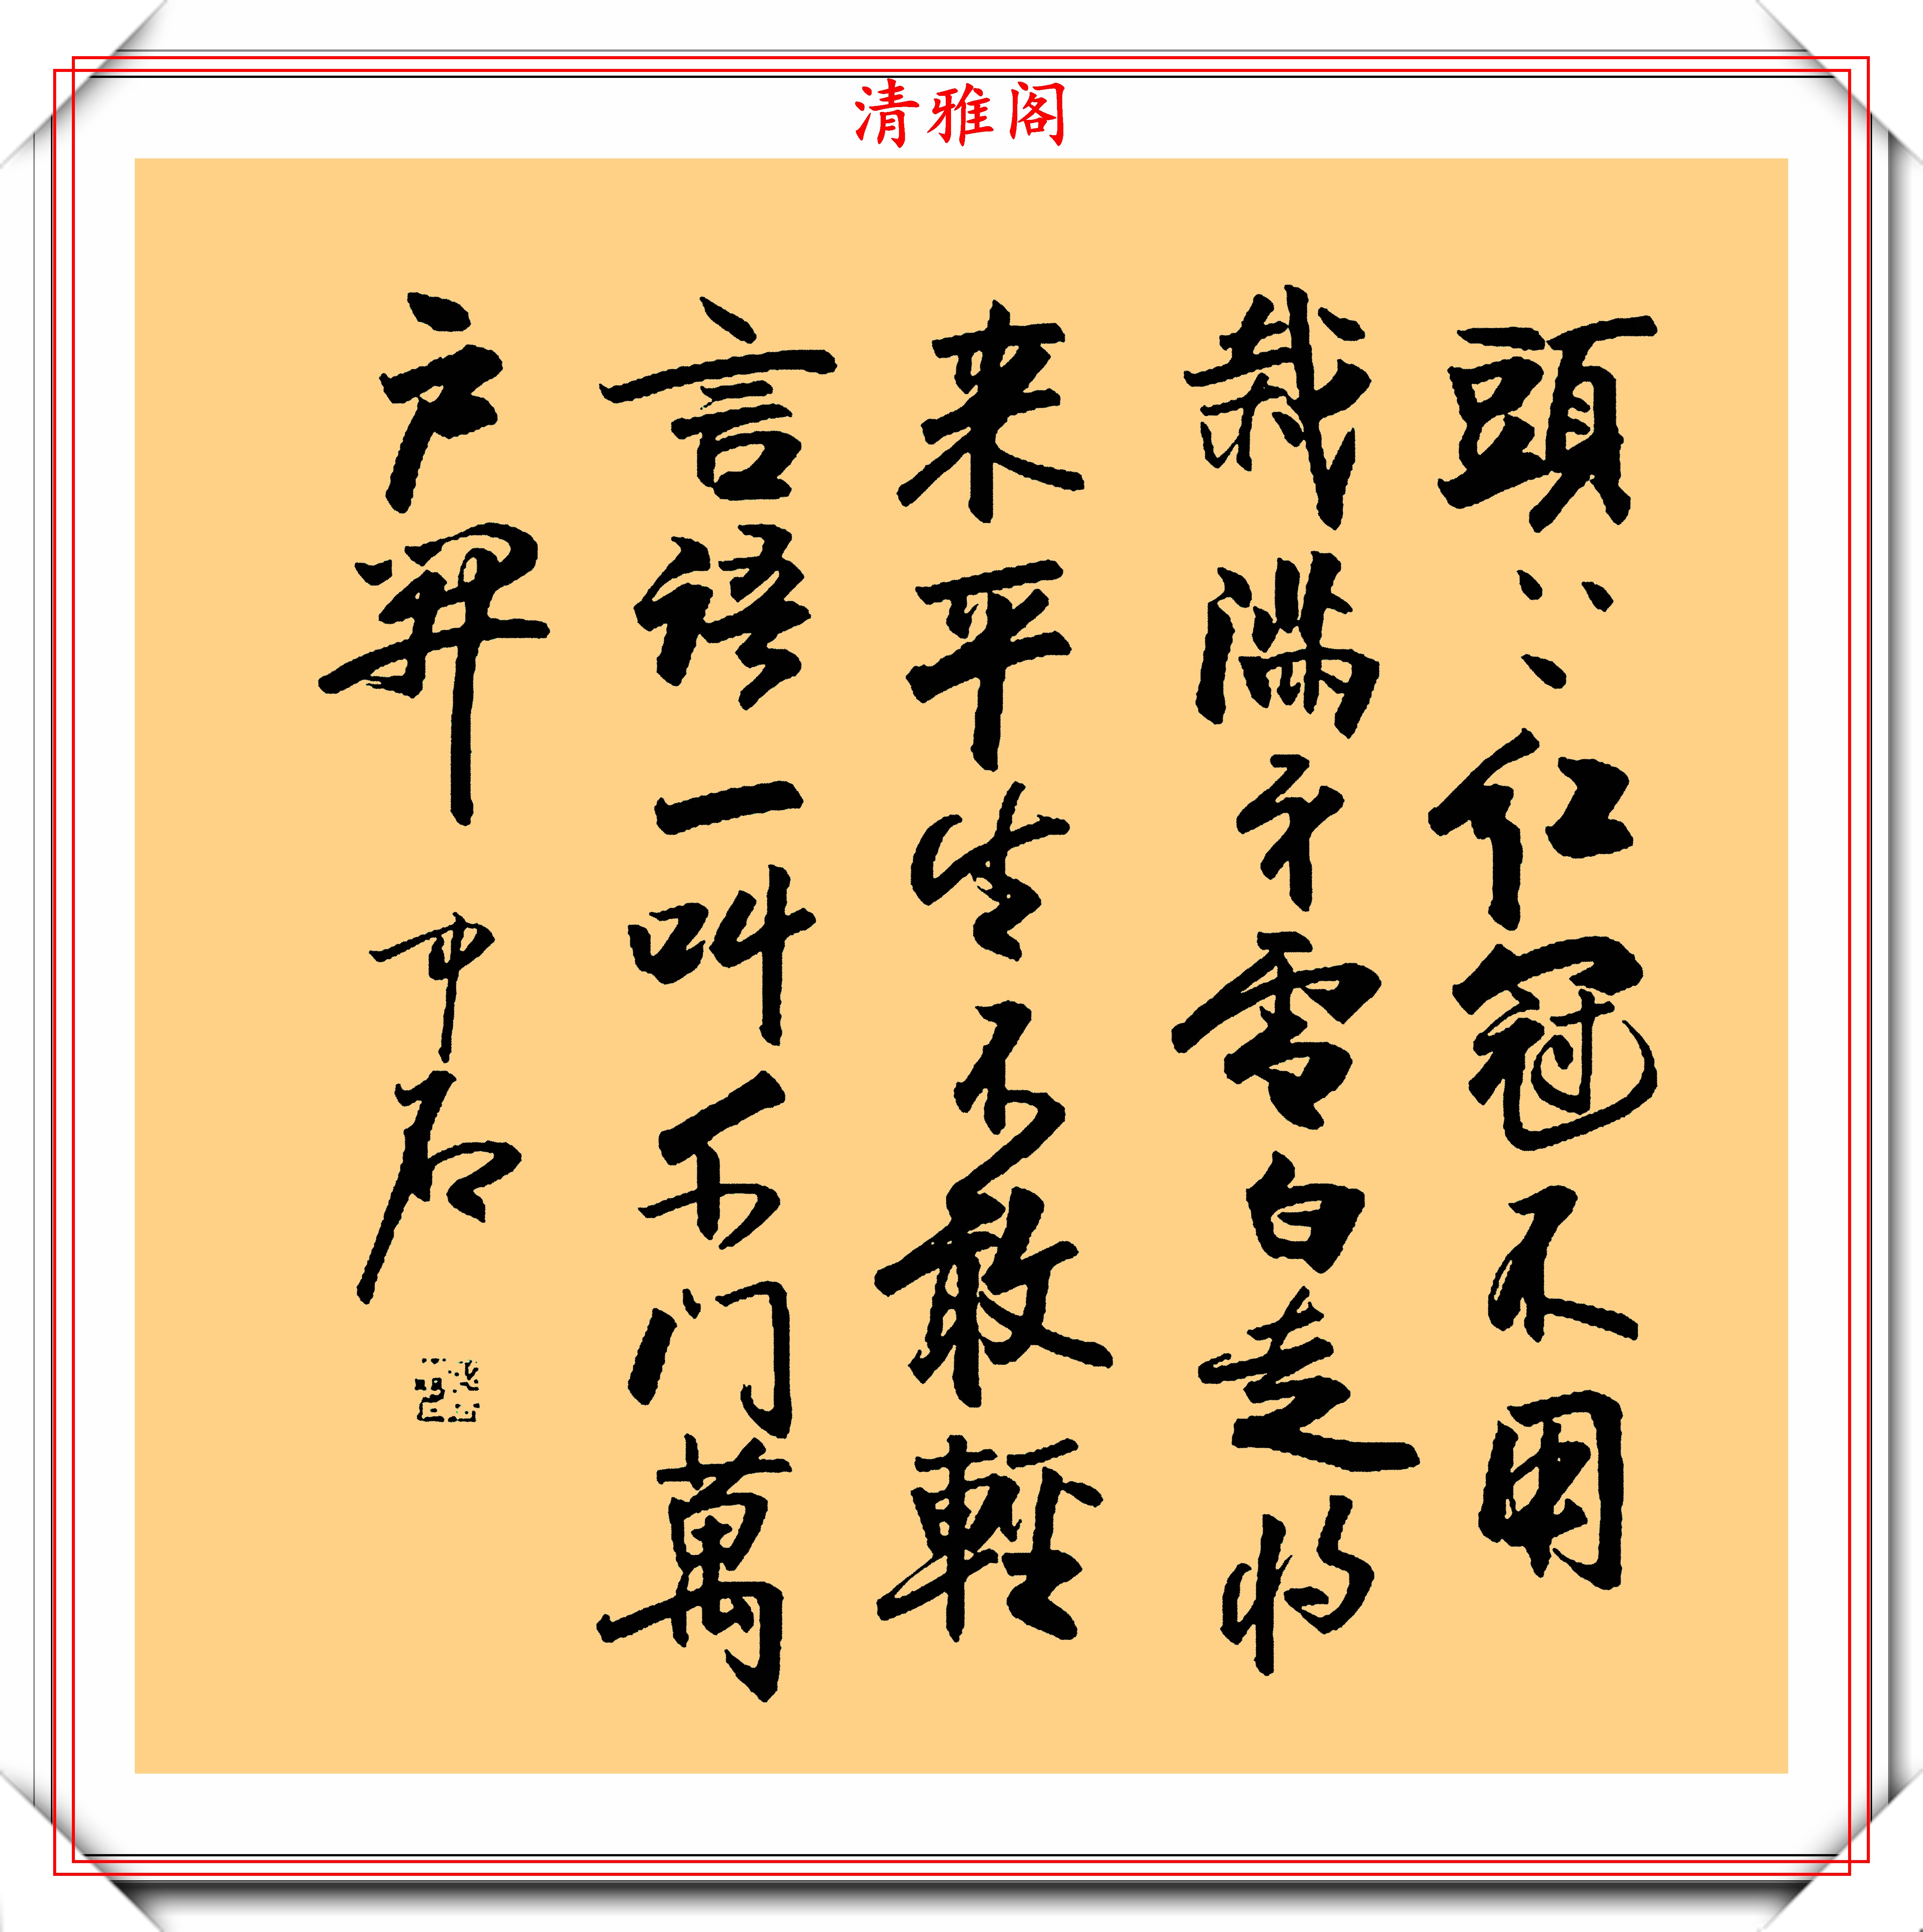 清雅阁
頭上紅冠不用
裁滿身雪白走将
来平生不敢輕
言語一叫千门萬
户開 中石